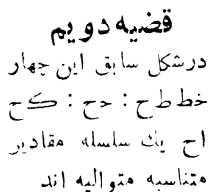 قضیه دویم
درشکل سابق این چهار
خط ط ح : ح ح : ک ح
ا ح یك سلسله مقادیر
متناسبه متوالیه اند